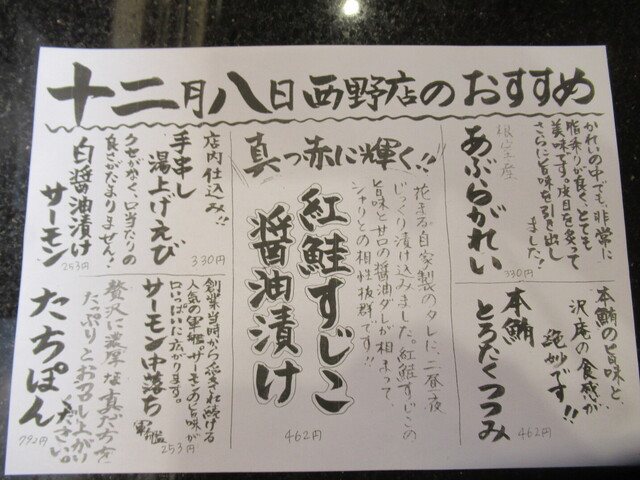 十二月八日西野店のおすすめ
かれいの中でも、非常に
脂乗りが良く、とても
美味です。皮目を炙って
さらに旨味を引き出し
ました!
根室産
あぶらがれい
330円
本鮪の旨味と
沢庵の食感が
絶妙です!!
本鮪
とろたくつつみ
462円
真っ赤に輝く!!
花まる自家製のタレに、二昼夜
じっくり漬け込みました。紅鮭すじこの
旨味と甘口の醤油ダレが相まって
シャリとの相性抜群です!!
紅鮭すじこ
醤油漬け
462円
店内仕込み!!
手串し
湯上げえび
330円
クセがなく、口当たりの
良さがたまりません!
白醤油漬け
サーモン
253円
創業当時から愛され続ける
人気の軍艦。サーモンの旨味が
口いっぱいに広がります。
サーモン中落ち
軍艦
253円
贅沢に濃厚な真だちを
たっぷりとお召し上がり
ください。
たちぽん
792円